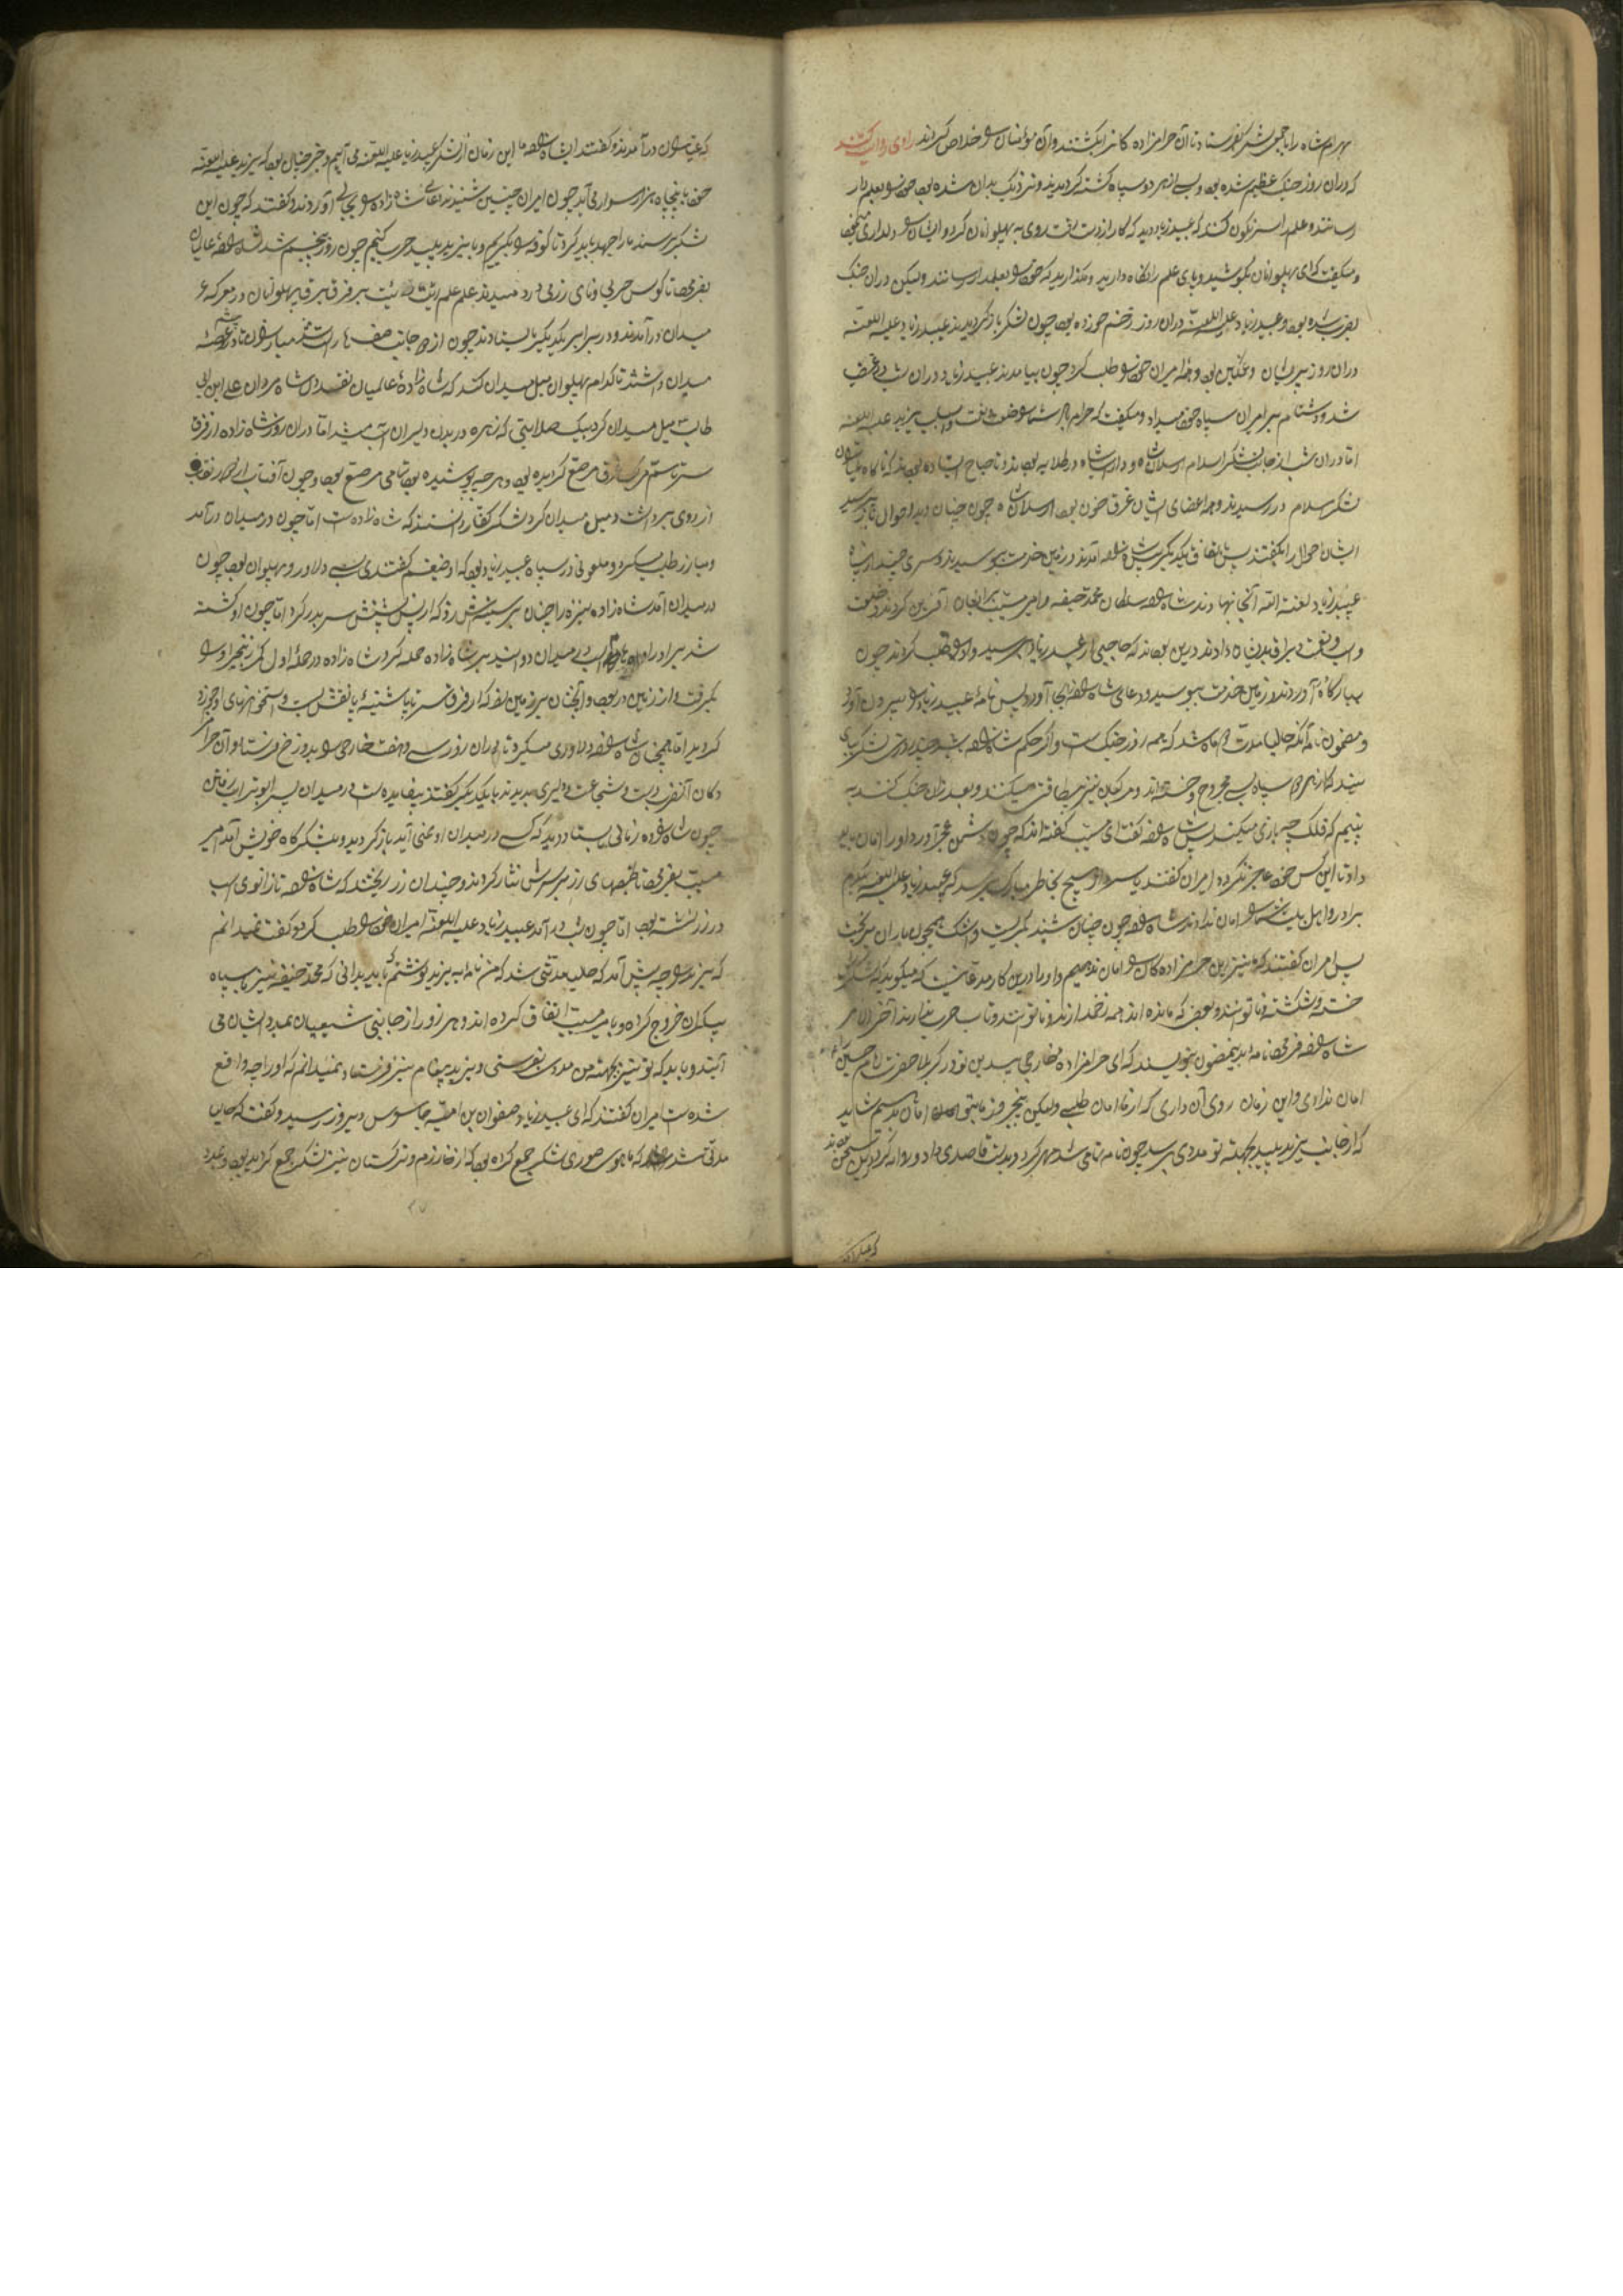 بهرام شاه را با جمعی لشکر بفرستاد تا آن حرامزاده کانرا بکشتند و آن مؤمنان را خلاص کردند راوی روایت کند
که در آن روز جنک عظیم شده بود و بسی از هر دو سپاه کشته کردیدند و نزدیک بدان شده بود خود را بعلمدار
رسانند و علم را سرنکون کنند که عبید زیاد دید که کار از دست رفت روی به پهلوانان کرد و ایشان را دلداری
و میکفت که ای پهلوانان بکوشید و پای علم را نکاه دارید و مکذارید که خود را بعلمدار رسانند ولیکن در آن جنک
و عبید زیاد علیه اللعنه در آن روز زخم خورده بود چون لشکر باز کردیدند عبید زیاد علیه اللعنه
در آن روز پریشان و غمکین بود و همه امیران خود را طلب کرد چون بیامدند عبید زیاد در آن شب در غضب
شد و دشنام بر امیران سپاه خود میداد و میکفت که حرام باد شما را
اما در آن شب از جانب لشکر اسلام ارسلان شاه و داراب شاه در طلایه بودند و تا صباح ایستاده بودند که ناکاه
لشکر اسلام در رسیدند و همه اعضای ایشان غرق خون بود ارسلان شاه چون چنان دید احوال باز پرسید
ایشان احوال را بکفتند پس باتفاق یکدیکر پیش شاهزاده آمدند و زمین خدمت ببوسیدند و سری چند از سپاه
عبید زیاد لعنة الله آنجا نهادند شاهزاده سلطان محمد حنیفه و امیر مسیب بر ایشان آفرین کردند و خلعت
و اسب بدیشان دادند درین بودند که حاجبی از عبید زیاد برسید و او را طلب کردند چون
ببارکاه آوردند و زمین خدمت ببوسید و دعای شاهزاده بجا آورد پس نامه عبید زیاد را بیرون آورد
و مضمون نامه آنکه حالیا مدت ماه شد که همه روز جنک است و اکر حکم شاهزاده بشود چند روزی لشکر
سپاه بسی مجروح و خسته اند و مرکبان نیز بیطاقتی میکنند و بعد از آن جنک کنند
ببینم که فلک چه بازی میکند پس شاهزاده کفت ای مسیب کفته اند که چون دشمن عجز آورد او را امان باید
داد تا این کس خود عاجز نکرده امیران کفتند یا هیچ بخاطر مبارک میرسد که عبید زیاد علیه اللعنه
برادر و اهل بیت شما را امان نداد شاهزاده چون چنان شنید بکریست و اشک همچون باران میریخت
پس امیران کفتند که این حرامزاده کان را امان ندهیم و او را درین کار مدعائیست که میکوید که لشکر
خسته و شکسته و ناتوانند و بعضی که مانده اند همه زخم دارند و ناتوانند و تاب حرب ندارند آخر الامر
شاهزاده فرمود نامه بدین مضمون بنویسند که ای حرامزاده خارجی پسید دین تو در کربلا حضرت امام حسین
امان ندادی و این زمان روی آن داری که از ما امان طلبی ولیکن بنج روز ما بتو امان بدهیم شاید
که از جانب یزید پلید بجهته تو مددی برسد چون نامه تمام شد مهر کرد و بدست قاصدی داد و روانه کرد درین سخن بودند
که عیاران
که عیاران در آمدند و کفتند ای شاهزاده ما این زمان از لشکر عبید زیاد علیه اللعنه می آییم و خبر چنان بود که یزید علیه اللعنه
خود با پنجاه هزار سوار می آید چون امیران چنین شنیدند دعای شاهزاده را بجای آوردند و کفتند که چون این
لشکر برسند ما را جهد باید کرد تا کوفه را بکیریم و با یزید پلید حرب کنیم چون روز پنجم شد شاهزاده عالمیان
بفرمود تا کوس حربی و نای رزمی در دمیدند علم علم برق برق پهلوانان در معرکه
میدان در آمدند و در برابر یکدیکر بایستادند چون از دو جانب صف ها راست شد مبارزان نظر در عرصه
میدان داشتند تا کدام پهلوان میل میدان کند که شاهزاده عالمیان نقد دل شاه مردان علی ابن ابی
طالب میل میدان کرد بیک صلابتی که زهره در بدن دلیران آب میشد اما در آن روز شاهزاده از فرق
سر تا سم مرکب غرق مرصع کردیده بود و هر چه پوشیده بود تمامی مرصع بود و چون آفتاب نقاب
از روی برداشت و میل میدان کرد لشکر کفار دانستند که شاهزاده است اما چون در میدان در آمد
و مبارز طلب میکرد و ملعونی در سپاه عبید زیاد بود که او ضیغم کفتندی بسی دلاور و پهلوان بود چون
در میدان آمد شاهزاده نیزه را چنان بر سینه اش زد که از پس پشتش سر بدر کرد اما چون او کشته
شد برادر او اسب در میدان دوانید بر شاهزاده حمله کرد شاهزاده در حمله اول کمر زنجیر او را
بکرفت و از زین در ربود و آنچنان بر زمین زد که از فرق سر تا پاشنه پا نقش بست و استخوانهای او خورد
کردید اما همچنان شاهزاده دلاوری میکرد تا در آن روز سی و هفت خارجی را بدوزخ فرستاد و آن حرامزاده
کان آن ضرب دست و شجاعت و دلیری بدیدند با یکدیکر کفتند بیفایده است در میدان پسر ابوتراب رفتن
چون شاهزاده زمانی بیستاد دید که کسی در میدان او نمی آید باز کردید و بلشکرکاه خویش آمد امیر
مسیب بفرمود تا طبقهای زر بر سرش نثار کردند و چندان زر ریختند که شاهزاده تا زانوی اسب
در زر نشسته بود اما چون شب در آمد عبید زیاد علیه اللعنه امیران خود را طلب کرد و کفت نمیدانم
که یزید را چه پیش آمد که حالیا مدتی شد که من نامه به یزید نوشتم که باید بدانی که محمد حنیفه نیز با سپاه
بیکران خروج کرده و با امیر مسیب اتفاق کرده اند و هر روز از جانبی شیعیان بمدد ایشان می
آیند و باید که تو نیز بجهته من مددی بفرستی و یزید پیغام نیز فرستاد نمیدانم که او را چه واقع
شده است امیران کفتند که ای عبید زیاد صفوان بن امیه جاسوس دیروز رسید و کفت که حالیا
مدتی شد که ماهوی صوری لشکر جمع کرده بود که از خوارزم و ترکستان نیز لشکر جمع کردیده بود